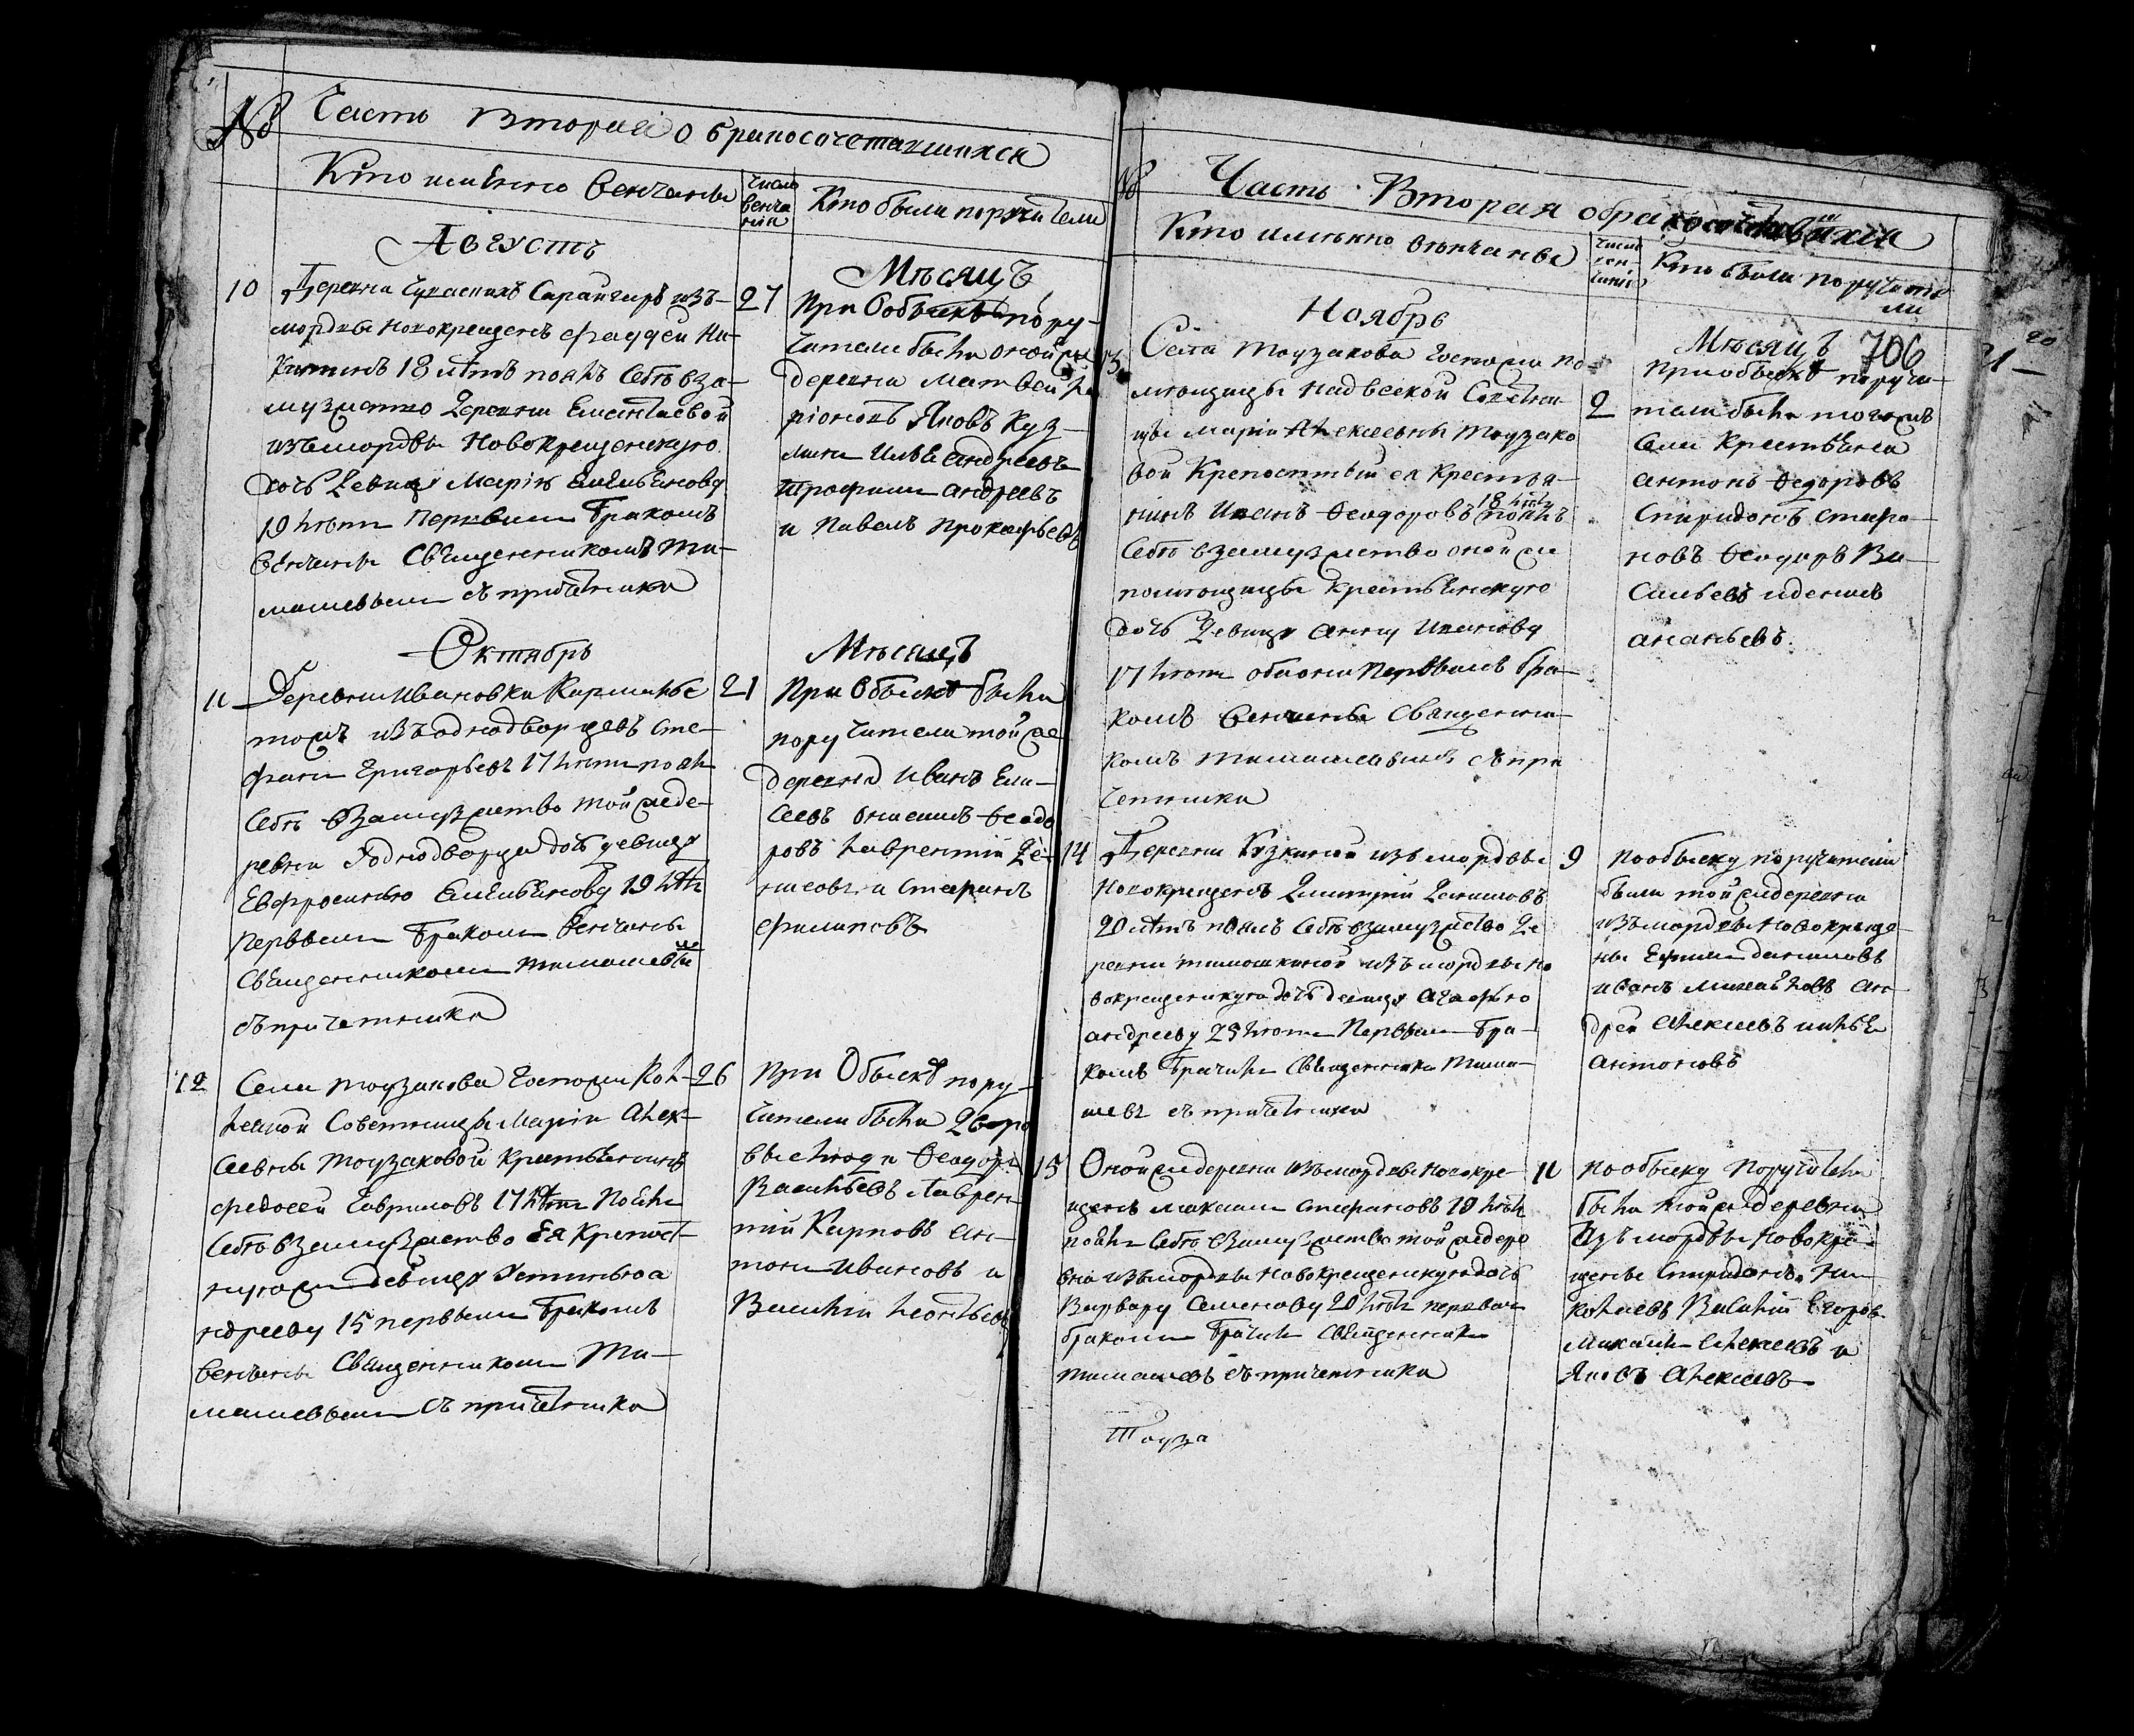 № Часть Вторая о бракосочетавшихся
Кто имянно венчаны
число венча нїя
Кто были поручители
Августъ
Мѣсяцъ
10
Деревни Чувасшихъ Сарангиръ изъ
мордвы новокрещенъ фаддей Ни-
китинъ 18 лѣтъ поялъ Себѣ вза-
мужство деревни Емантаевой
изъ мордвы Новокрещенскую
дочь девицу Марїю Емельянову
19 лѣтъ первымъ бракомъ
венчаны Священникомъ Ти-
машевымъ съ причетники
27
При обыскѣ пору-
чители были оной же
деревни Матвей
Яковъ Куз-
минъ Илья андреевъ
Трофимъ андреевъ
и Павелъ прокофьевъ
Октябрь
Мѣсяцъ
11
Деревни Ивановки Кармалы
тожъ изъ однодворцевъ сте-
фанъ Григорьевъ 17 лѣтъ поялъ
Себѣ взамужство той же де-
ревни однодворца дочь девицу
Евфросинью Емельянову 19 лѣтъ
первымъ бракомъ венчаны
Священникомъ тимашевымъ
съ причетники
21
При Обыскѣ были
поручители той же
деревни Иванъ Ели-
сеевъ Онисимъ Ѳеодо
ровъ лаврентїй де-
нисовъ и стефанъ
филиповъ
12
Села тоузакова Госпожи Кол-
лежской Советницы Марїи Алек-
сеевны Тоузаковой крестьянинъ
федосей Гавриловъ 17 лѣтъ поялъ
Себѣ взамужство Ея Крепост-
ную девицу Устинью а
ндрееву 15 первымъ бракомъ
венчаны Священникомъ Ти-
машевымъ съ причетники
26
При Обыскѣ пору-
чители были дворо
вые люди Ѳеодоръ
Васильевъ Лаврен-
тїй Карповъ ан-
тонъ Ивановъ и
Василїй леонтьевъ
№ Часть Вторая о бракосочетавшихся
Кто имянно вѣнчаны
число вен чанїя
Кто были поручите
ли
Ноябрь
Мѣсяцъ 706
13
Села Тоузакова Госпожи по-
мѣщицы надворной Советни-
цы Марїи Алексеевны Тоузако
вой Крепостный ея Крестья-
нинъ Иванъ Ѳеодоровъ 18 лѣтъ поялъ
Себѣ взамужство оной же
помѣщицы крестьянскую
дочь девицу анну Иванову
17 лѣтъ обаони первымъ бра-
комъ венчаны Священни-
комъ тимашевымъ съ при
четники
2
При обыскѣ поручи-
тели были тогожъ
села крестьяна
антонъ Ѳедоровъ
Спиридонъ стефа-
новъ Ѳеодоръ Ва-
сильевъ и денисъ
ананьевъ
14
Деревни Кузькиной изъ мордвы
Новокрещенъ Дмитрїй Даниловъ
20 лѣтъ поялъ Себѣ взамужство де
ревни тимошкиной изъ мордвы но
вокрещенскую дочь девицу Агафью
андрееву 25 лѣтъ первымъ бра-
комъ брачилъ Священникъ Тима-
шевъ съ причетники
9
По обыску поручители
были той же деревни
изъ мордвы новокреще-
ны Ефимъ даниловъ
Иванъ Михайловъ ан-
дрей алексеевъ илья
антоновъ
15
Оной же деревни изъ мордвы новокре-
щенъ Максимъ стефановъ 19 лѣтъ
поялъ Себѣ взамужство той же дере
вни изъ мордвы новокрещенскую дочь
Варвару Семенову 20 лѣтъ первымъ
бракомъ брачилъ Священникъ
тимашевъ съ причетники
11
По обыску поручители
были той же деревни
изъ мордвы новокре-
щены Спиридонъ Ни
колаевъ Василїй Егоровъ
Михайла Алексеевъ и
Яковъ Алексеевъ
Тоуза